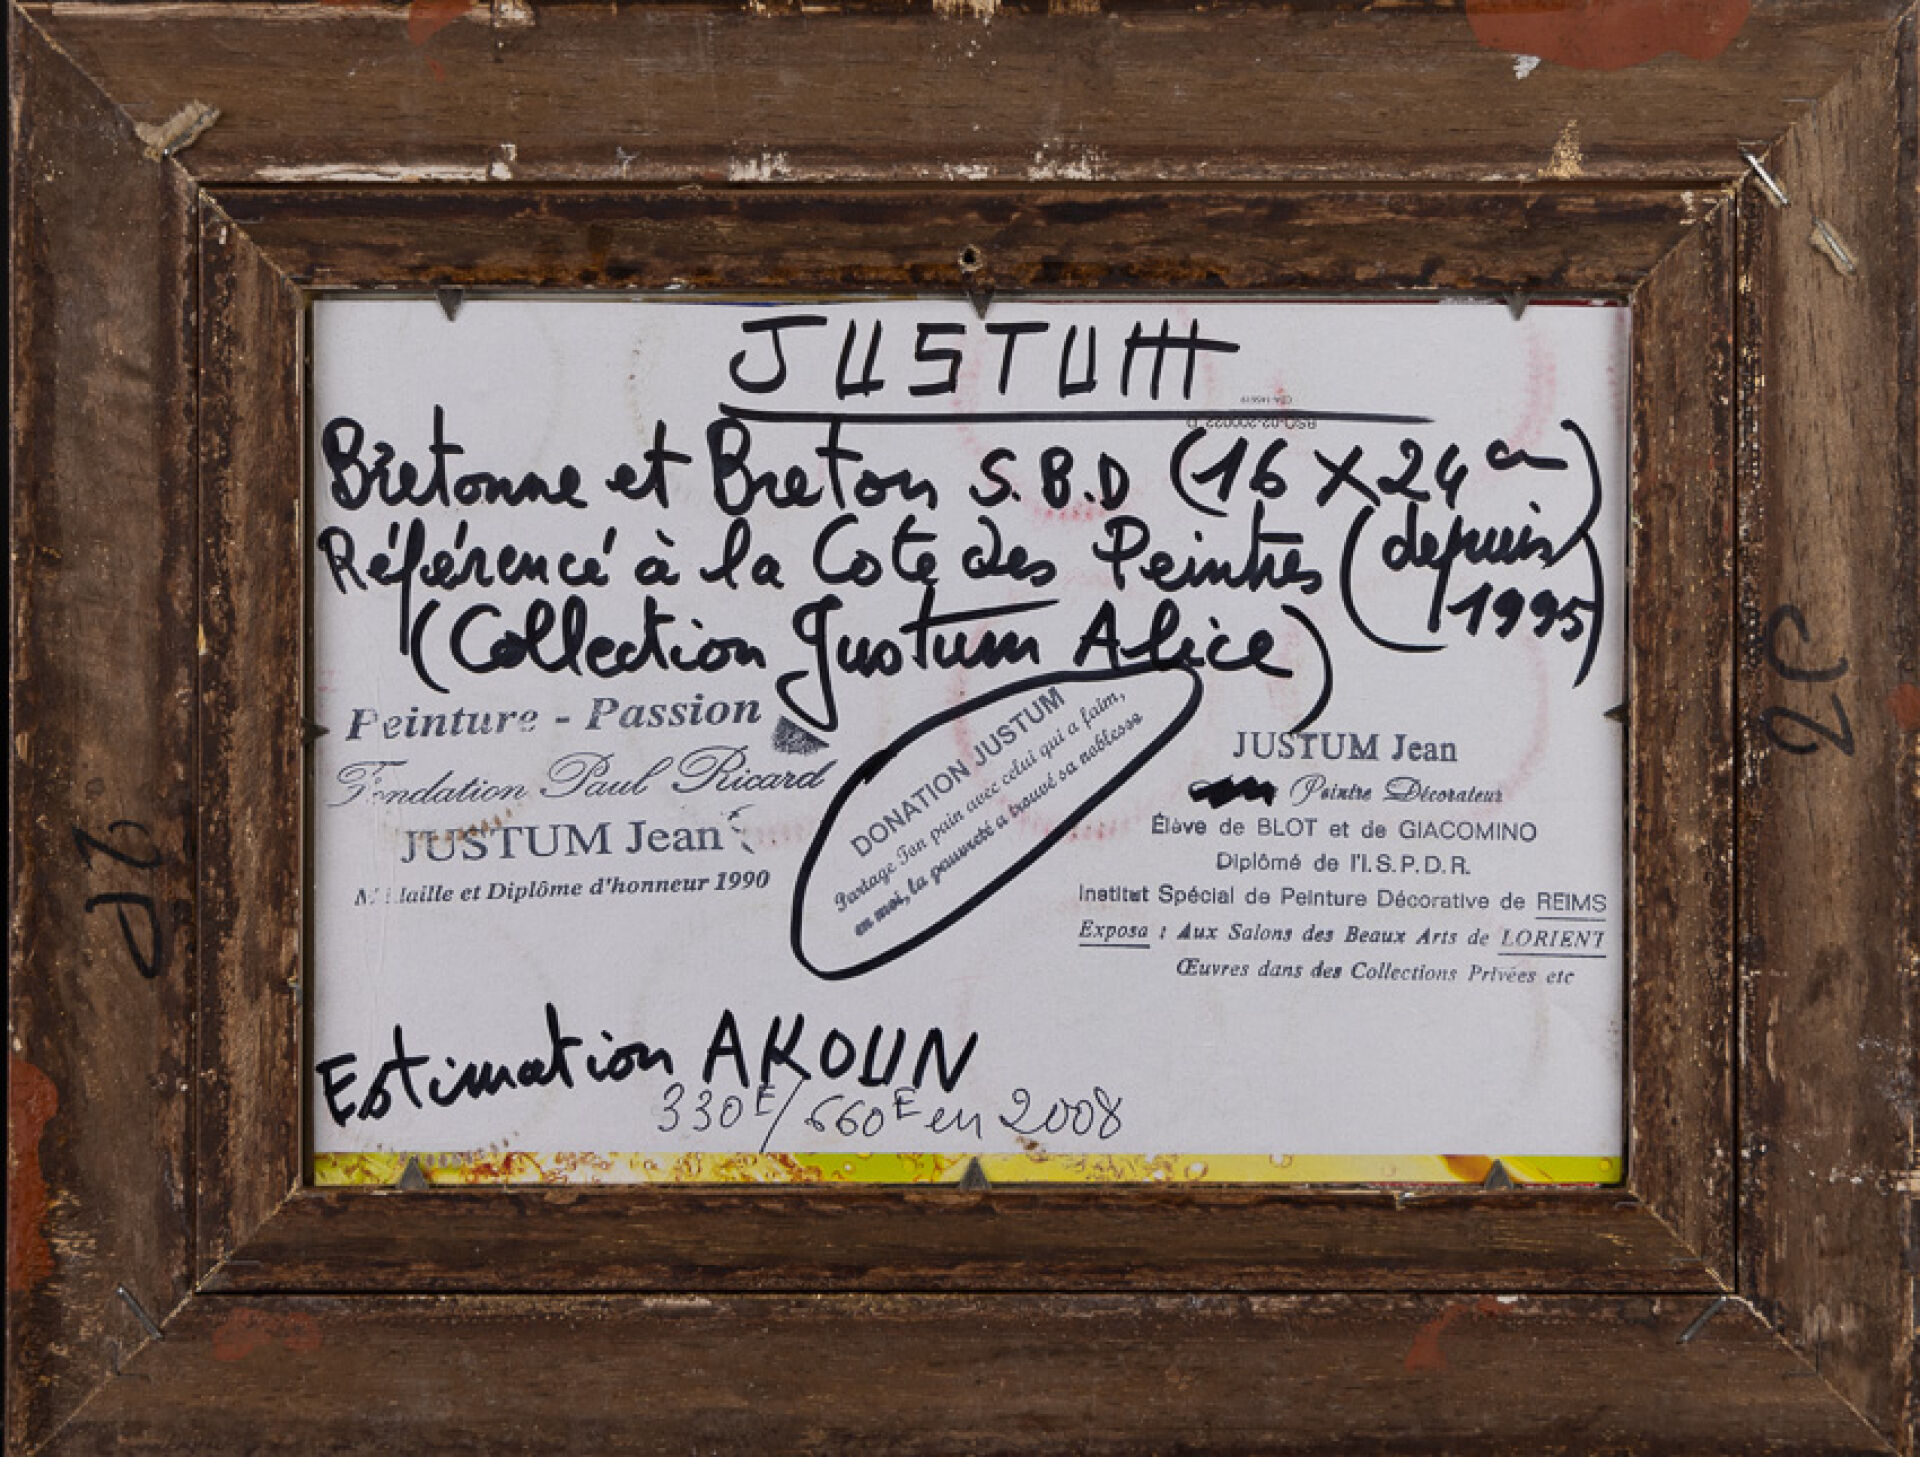 JUSTUM
Bretonne et Breton S.B.D (16 X 24 cm)
Référencé à la Cote des Peintres (depuis 1995)
(Collection Justum Alice)
Peinture - Passion
Fondation Paul Ricard
JUSTUM Jean
Médaille et Diplôme d'honneur 1990
DONATION JUSTUM
Partage Ton pain avec celui qui a faim,
en moi, la pauvreté a trouvé sa noblesse
JUSTUM Jean
Peintre Décorateur
Élève de BLOT et de GIACOMINO
Diplômé de l'I.S.P.D.R.
Institut Spécial de Peinture Décorative de REIMS
Exposa : Aux Salons des Beaux Arts de LORIENT
Œuvres dans des Collections Privées etc
Estimation AKOUN
330E/660E en 2008